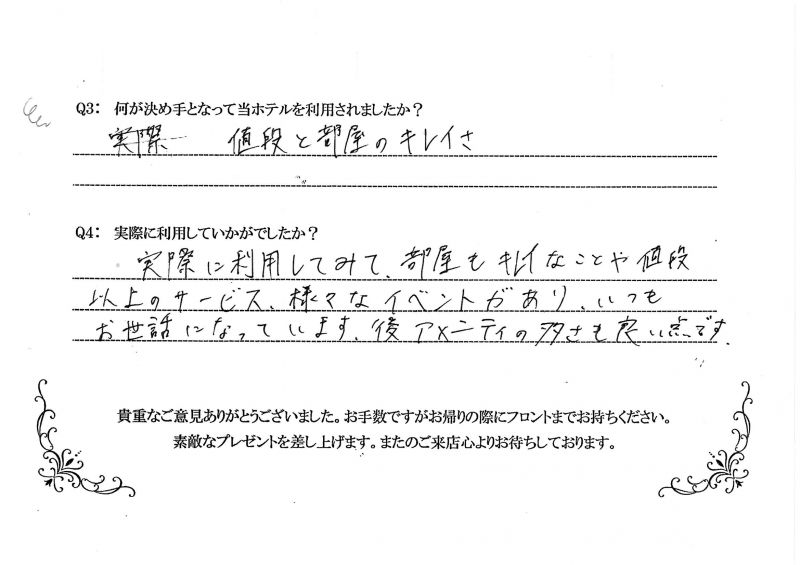 Q3： 何が決め手となって当ホテルを利用されましたか？
実際 値段と部屋のキレイさ
Q4： 実際に利用していかがでしたか？
実際に利用してみて、部屋もキレイなことや値段
以上のサービス、様々なイベントがあり、いつも
お世話になっています。後アメニティの多さも良い点です。
貴重なご意見ありがとうございました。お手数ですがお帰りの際にフロントまでお持ちください。
素敵なプレゼントを差し上げます。またのご来店心よりお待ちしております。